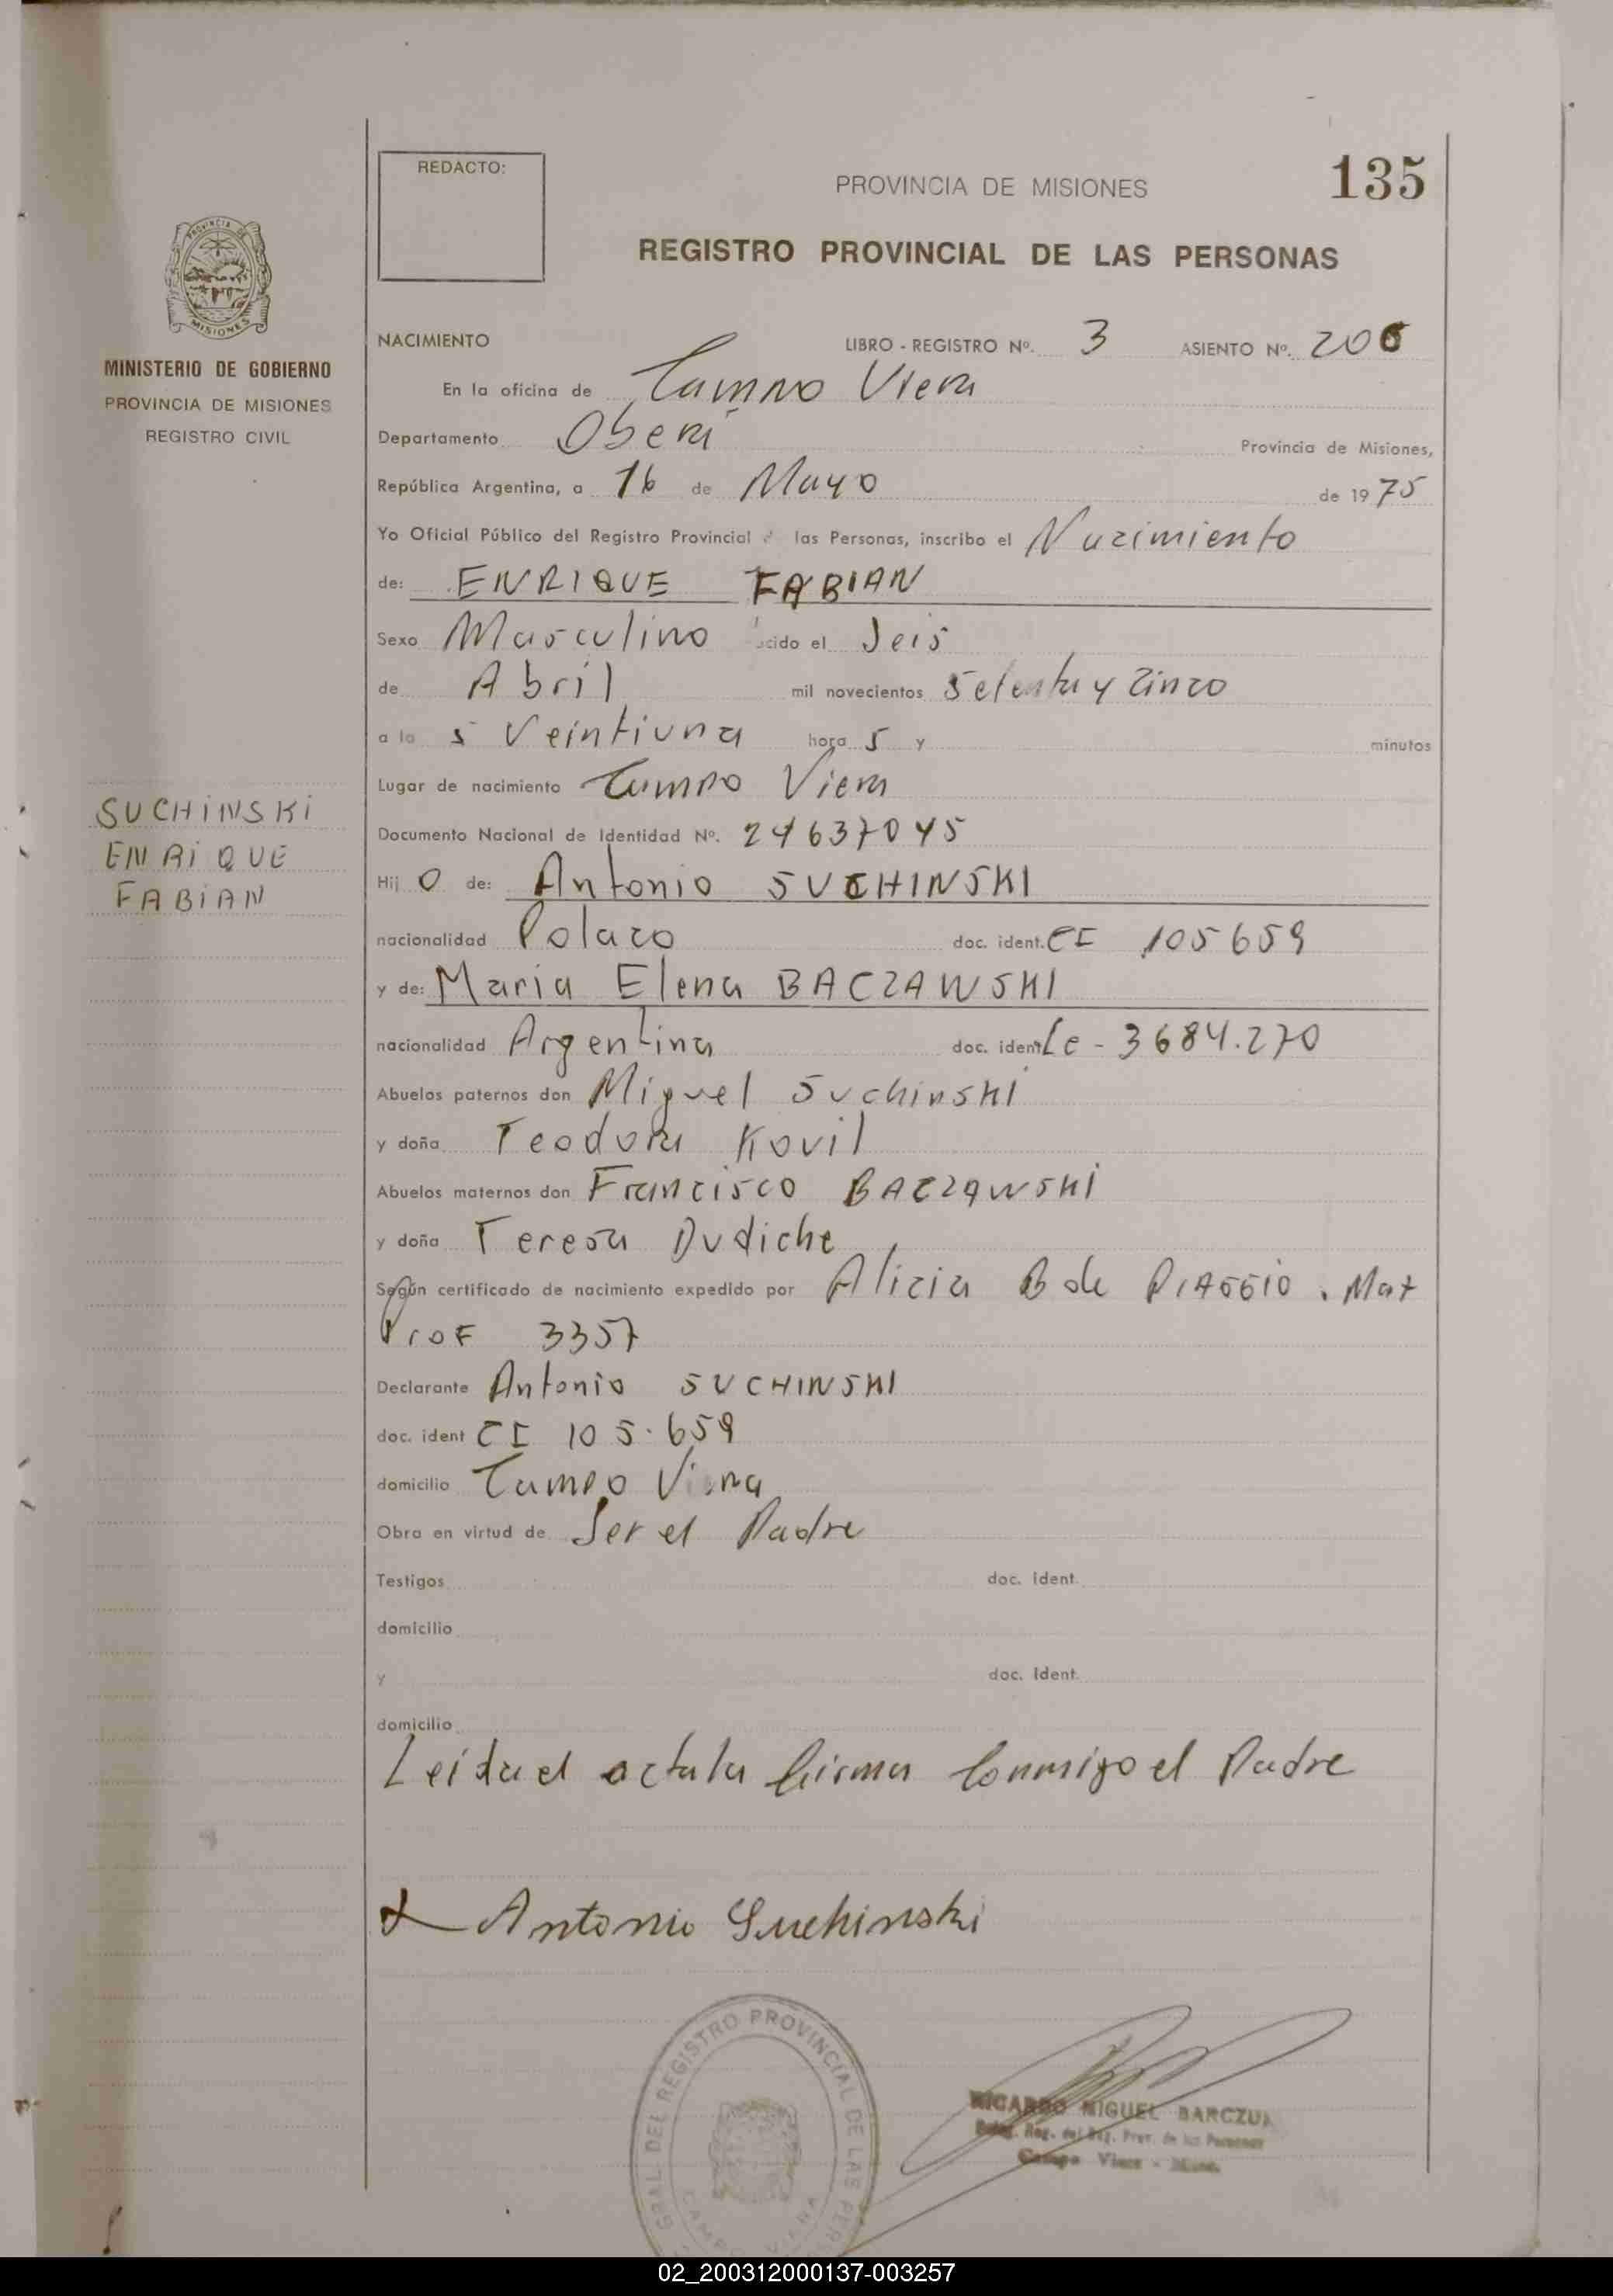 REDACTO:
PROVINCIA DE MISIONES
135
REGISTRO PROVINCIAL DE LAS PERSONAS
PROVINCIA DE
MISIONES
MINISTERIO DE GOBIERNO
PROVINCIA DE MISIONES
REGISTRO CIVIL
NACIMIENTO LIBRO - REGISTRO Nº. 3 ASIENTO Nº. 206
En la oficina de Campo Viera
Departamento Oberá Provincia de Misiones,
República Argentina, a 16 de Mayo de 1975
Yo Oficial Público del Registro Provincial las Personas, inscribo el Nacimiento
de: ENRIQUE FABIAN
Sexo Masculino cido el Seis
de Abril mil novecientos setenta y Cinco
a la s Veintiuna hora s y minutos
Lugar de nacimiento Campo Viera
SUCHINSKI
ENRIQUE
FABIAN
Documento Nacional de Identidad Nº. 24637045
Hij o de: Antonio SUCHINSKI
nacionalidad Polaco doc. ident. CI 105659
y de: Maria Elena BACZAWSKI
nacionalidad Argentina doc. ident Lc - 3684.270
Abuelos paternos don Miguel Suchinski
y doña Teodora Kovil
Abuelos maternos don Francisco BACZAWSKI
y doña Teresa Dudiche
Según certificado de nacimiento expedido por Alicia B de PIAGGIO . Mat
Prof 3357
Declarante Antonio SUCHINSKI
doc. ident CI 105.659
domicilio Campo Viera
Obra en virtud de Ser el Padre
Testigos doc. ident.
domicilio
y doc. ident.
domicilio
Leida el acta la firma Conmigo el Padre
Antonio Suchinski
GRAL DEL REGISTRO PROVINCIAL DE LAS PER
RICARDO MIGUEL BARCZUK
Reg. del Reg. Prov. de las Personas
Campo Viera - Mnes.
02_200312000137-003257